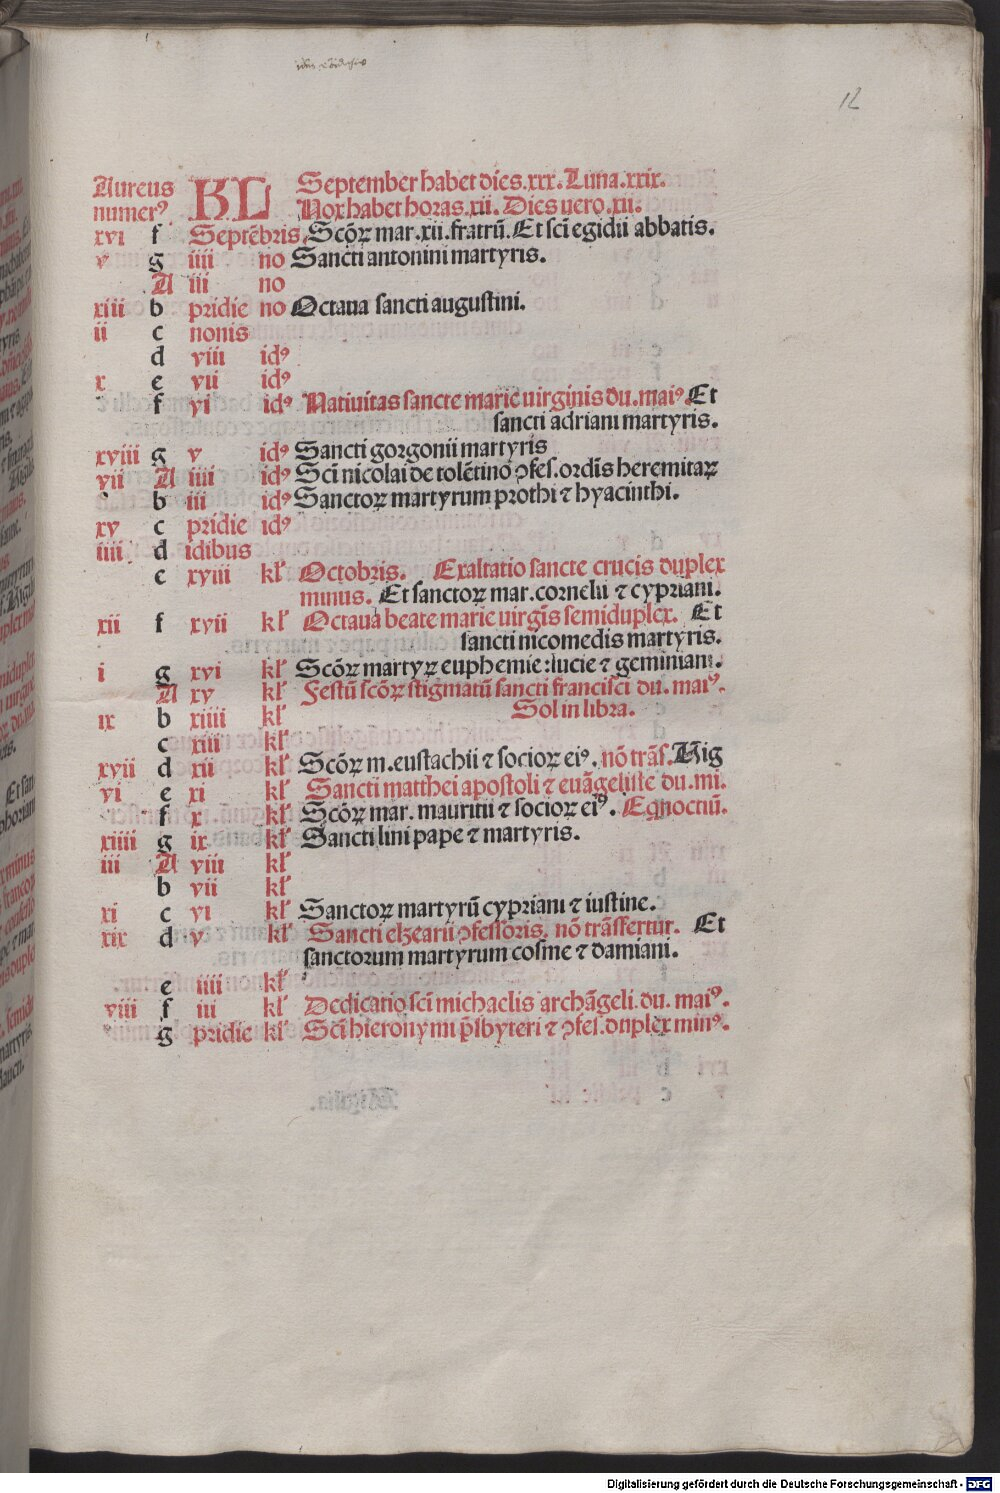 12
Aureus KL September habet dies.xxx.Luna.xxix.
numerꝰ Nox habet horas.xii.Dies uero.xii.
xvi f Septēbris. Scōꝝ mar.xii.fratrū.Et scī egidii abbatis.
v g iiii no Sancti antonini martyris.
A iii no
xiii b pridie no Octaua sancti augustini.
ii c nonis
d viii idꝰ
x e vii idꝰ
f vi idꝰ Natiuitas sancte marie uirginis du.maiꝰ Et
sancti adriani martyris.
xviii g v idꝰ Sancti gorgonii martyris
vii A iiii idꝰ Scī nicolai de tolētino ꝯfes.ordīs heremitaꝝ
b iii idꝰ Sanctoꝝ martyrum prothi ⁊ hyacinthi.
xv c pridie idꝰ
iiii d idibus
e xviii kł Octobris. Exaltatio sancte crucis duplex
minus. Et sanctoꝝ mar.cornelii ⁊ cypriani.
xii f xvii kł Octaua beate marie uirgīs semiduplex. Et
sancti nicomedis martyris.
i g xvi kł Scōꝝ martyꝝ euphemie:lucie ⁊ geminiani.
A xv kł Festū scōꝝ stigmatū sancti francisci du. maiꝰ.
Sol in libra.
ix b xiiii kł
c xiii kł
xvii d xii kł Scōꝝ m.eustachii ⁊ socioꝝ eiꝰ. nō trāſ. Uig
vi e xi kł Sancti matthei apostoli ⁊ euāgeliste du. mi.
f x kł Scōꝝ mar. mauritii ⁊ socioꝝ eiꝰ. Eqnoctiū.
xiiii g ix kł Sancti lini pape ⁊ martyris.
iii A viii kł
b vii kł
xi c vi kł Sanctoꝝ martyrū cypriani ⁊ iustine.
xix d v kł Sancti elzearii ꝯfessoris. nō trāssertur. Et
sanctorum martyrum cosme ⁊ damiani.
e iiii kł
viii f iii kł Dedicatio scī michaelis archāgeli.du. maiꝰ.
g pridie kł Scī hieronymi p̄sbyteri ⁊ ꝯfes.duplex minꝰ.
Digitalisierung gefördert durch die Deutsche Forschungsgemeinschaft - DFG